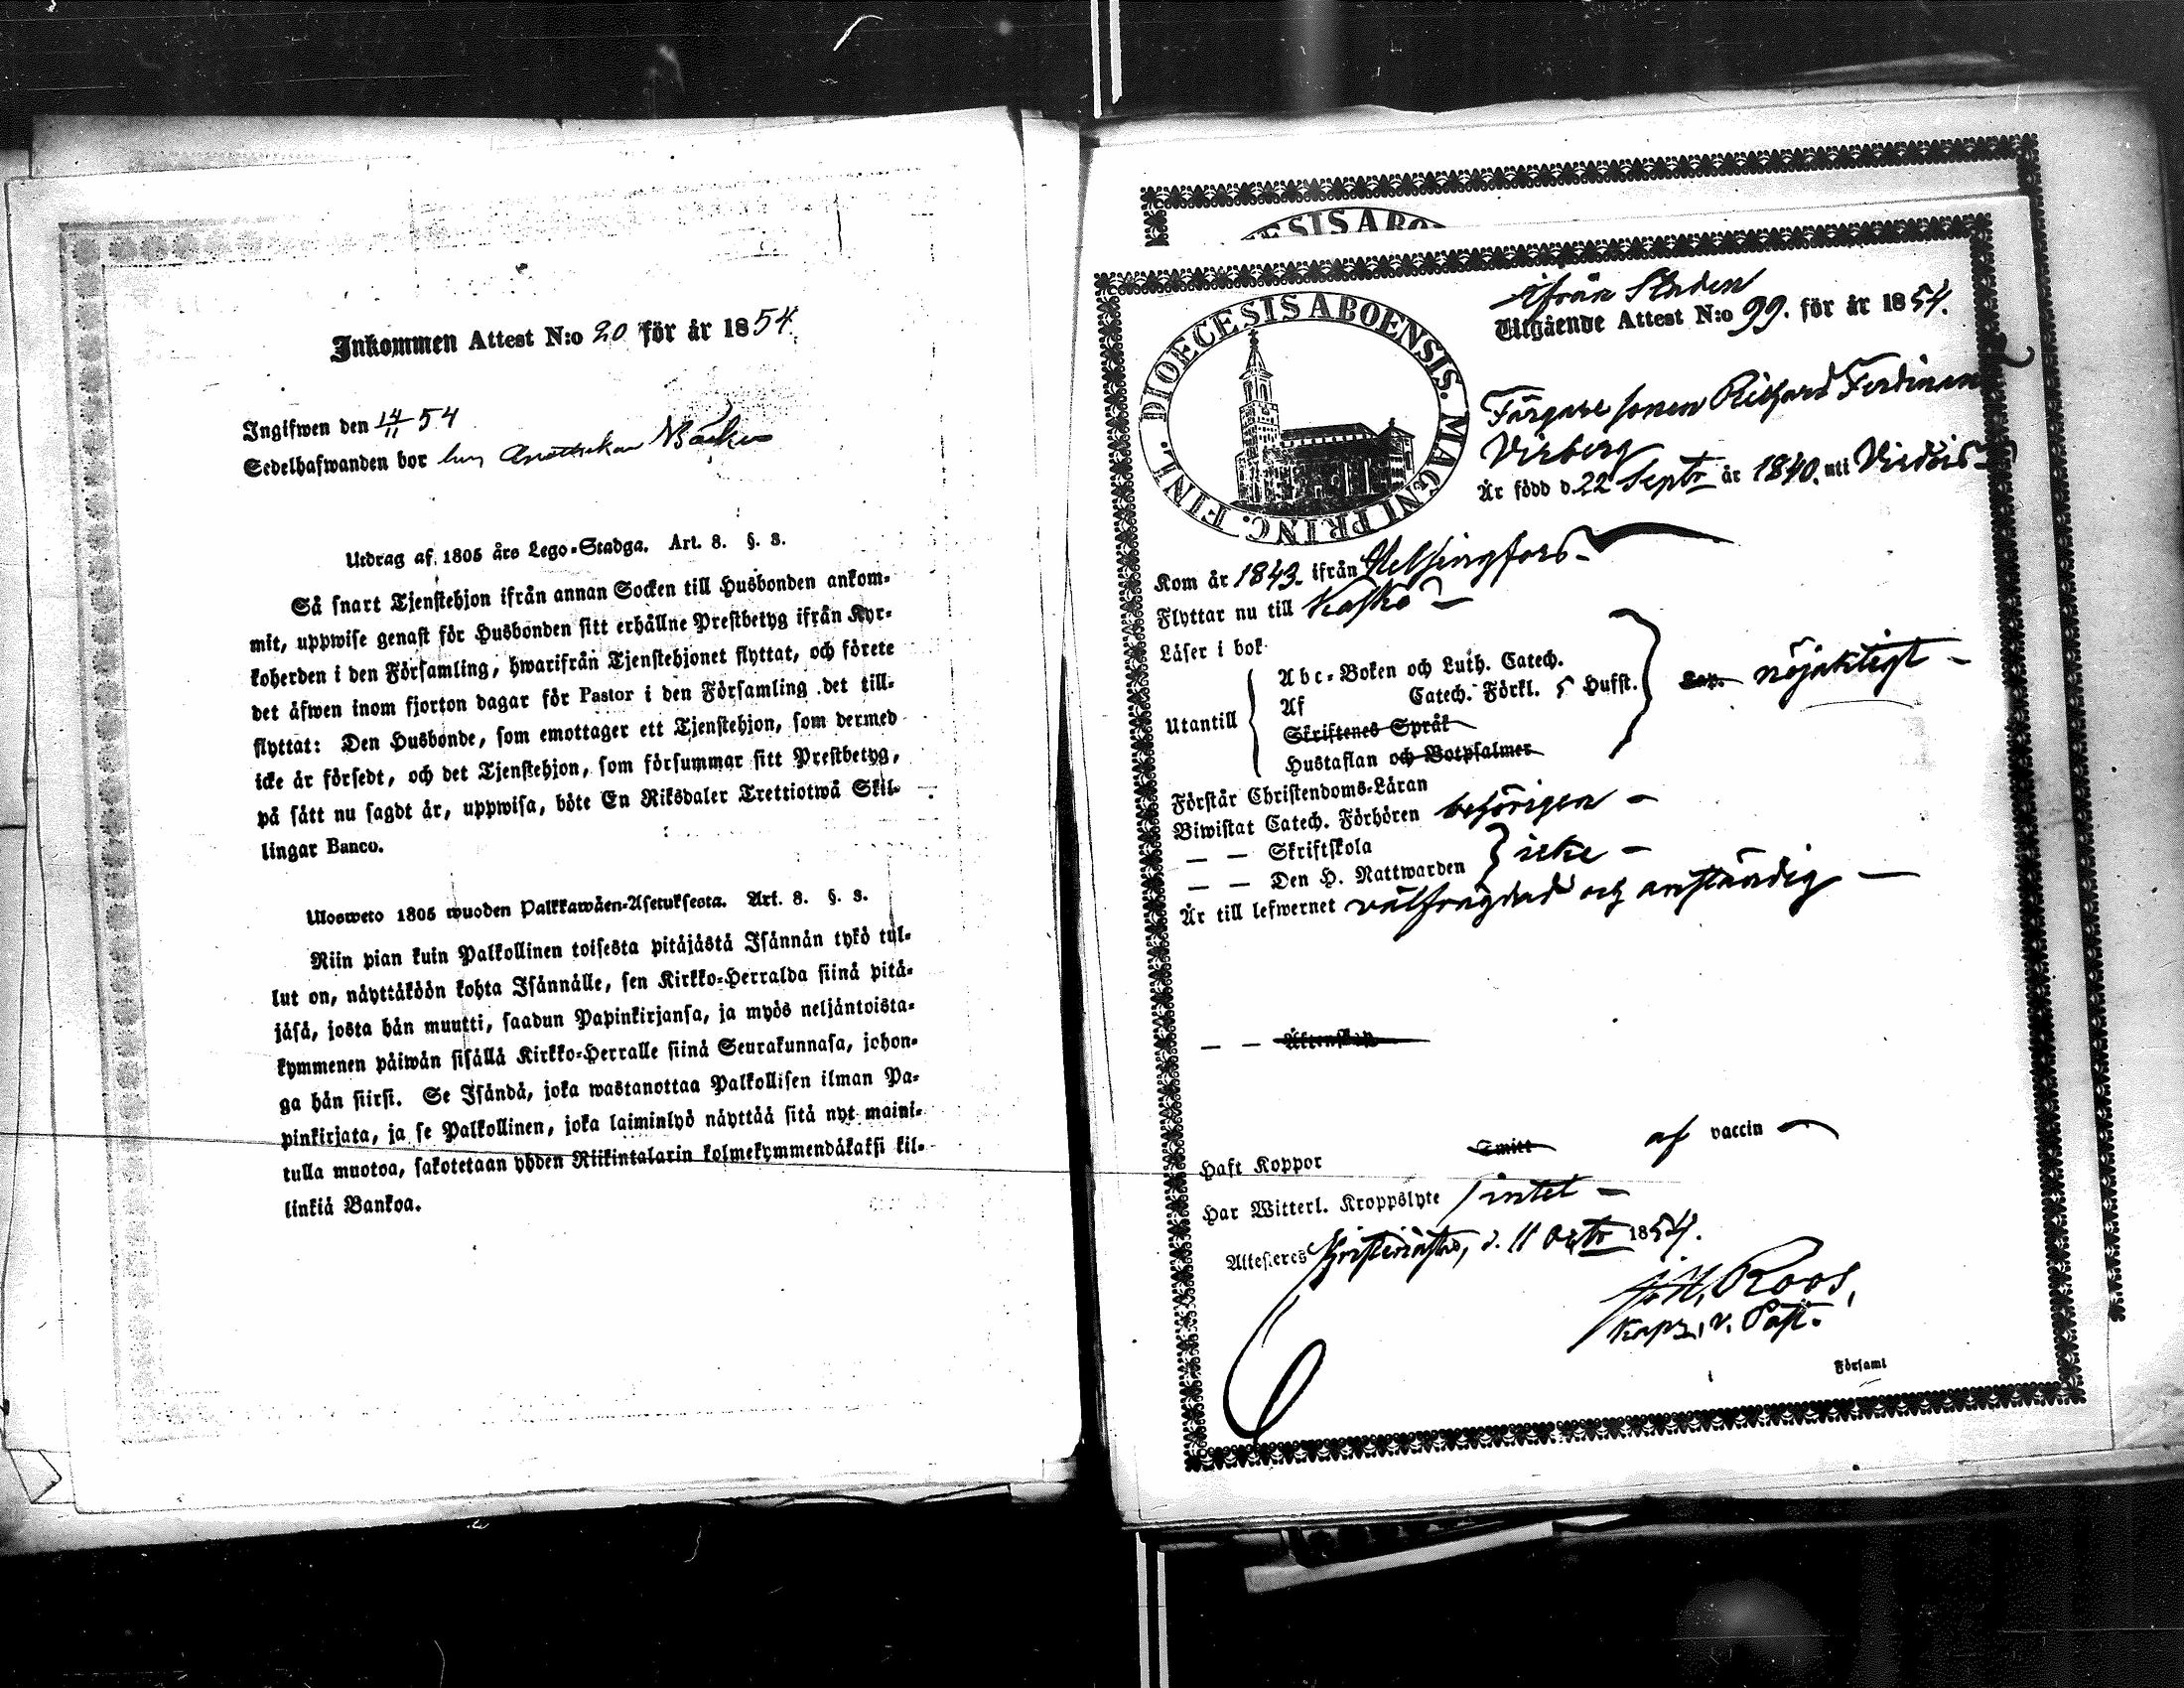 Inkommen Attest N:o 20 för år 1854.
Ingifwen den 14/11 54
Sedelhafwanden bor hos Apothekar Bäcker
Utdrag af 1805 års Lego-Stadga. Art. 8. §. 3.
Så snart Tjenstehjon ifrån annan Socken till Husbonden ankom-
mit, uppwise genast för Husbonden sitt erhållne Prestbetyg ifrån Kyr-
koherden i den Församling, hwarifrån Tjenstehjonet flyttat, och förete
det äfwen inom fjorton dagar för Pastor i den Församling det till-
flyttat: Den Husbonde, som emottager ett Tjenstehjon, som dermed
icke är försedt, och det Tjenstehjon, som försummar sitt Prestbetyg,
på sätt nu sagdt är, uppwisa, böte En Riksdaler Trettiotwå Skil-
lingar Banco.
Ulosweto 1805 wuoden Palkkawäen-Asetuksesta. Art. 8. §. 3.
Niin pian kuin Palkollinen toisesta pitäjästä Isännän tykö tul-
lut on, näyttäköön kohta Isännälle, sen Kirkko-Herralda siinä pitä-
jäsä, josta hän muutti, saadun Papinkirjansa, ja myös neljäntoista-
kymmenen päiwän sisällä Kirkko-Herralle siinä Seurakunnasa, johon-
ga hän siirsi. Se Isändä, joka wastanottaa Palkollisen ilman Pa-
pinkirjata, ja se Palkollinen, joka laiminlyö näyttää sitä nyt maini-
tulla muotoa, sakotetaan yhden Riikintalarin kolmekymmendäkaksi kil-
linkiä Bankoa.
ESIS ABO
DIOECESIS ABOENSIS. MAGNI PRINC. FINL.
Ifrån Staden
Utgående Attest N:o 99. för år 1854.
Färgare sonen Richard Ferdinand
Virberg
Är född d. 22 Septr år 1840. uti Virdois
Kom år 1843. ifrån Helsingfors
Flyttar nu till Kaskö
Läser i bok
Utantill
Abc-Boken och Luth. Catech.
Af Catech. Förkl. 5 Hufst.
Skriftenes Språk
Hustaflan och Botpsalmer
nöjaktigt
Förstår Christendoms-Läran
Biwistat Catech. Förhören behörigen
— — Skriftskola
— — Den H. Nattwarden
icke
Är till lefwernet välfrägdad och anständig
— — Äktenskap
Haft Koppor Smitt af vaccin
Har Witterl. Kroppslyte intet
Attesteres Kristinestad, d. 11 Octr 1854.
J. H. Roos,
Kapl., v. Past.
Församl